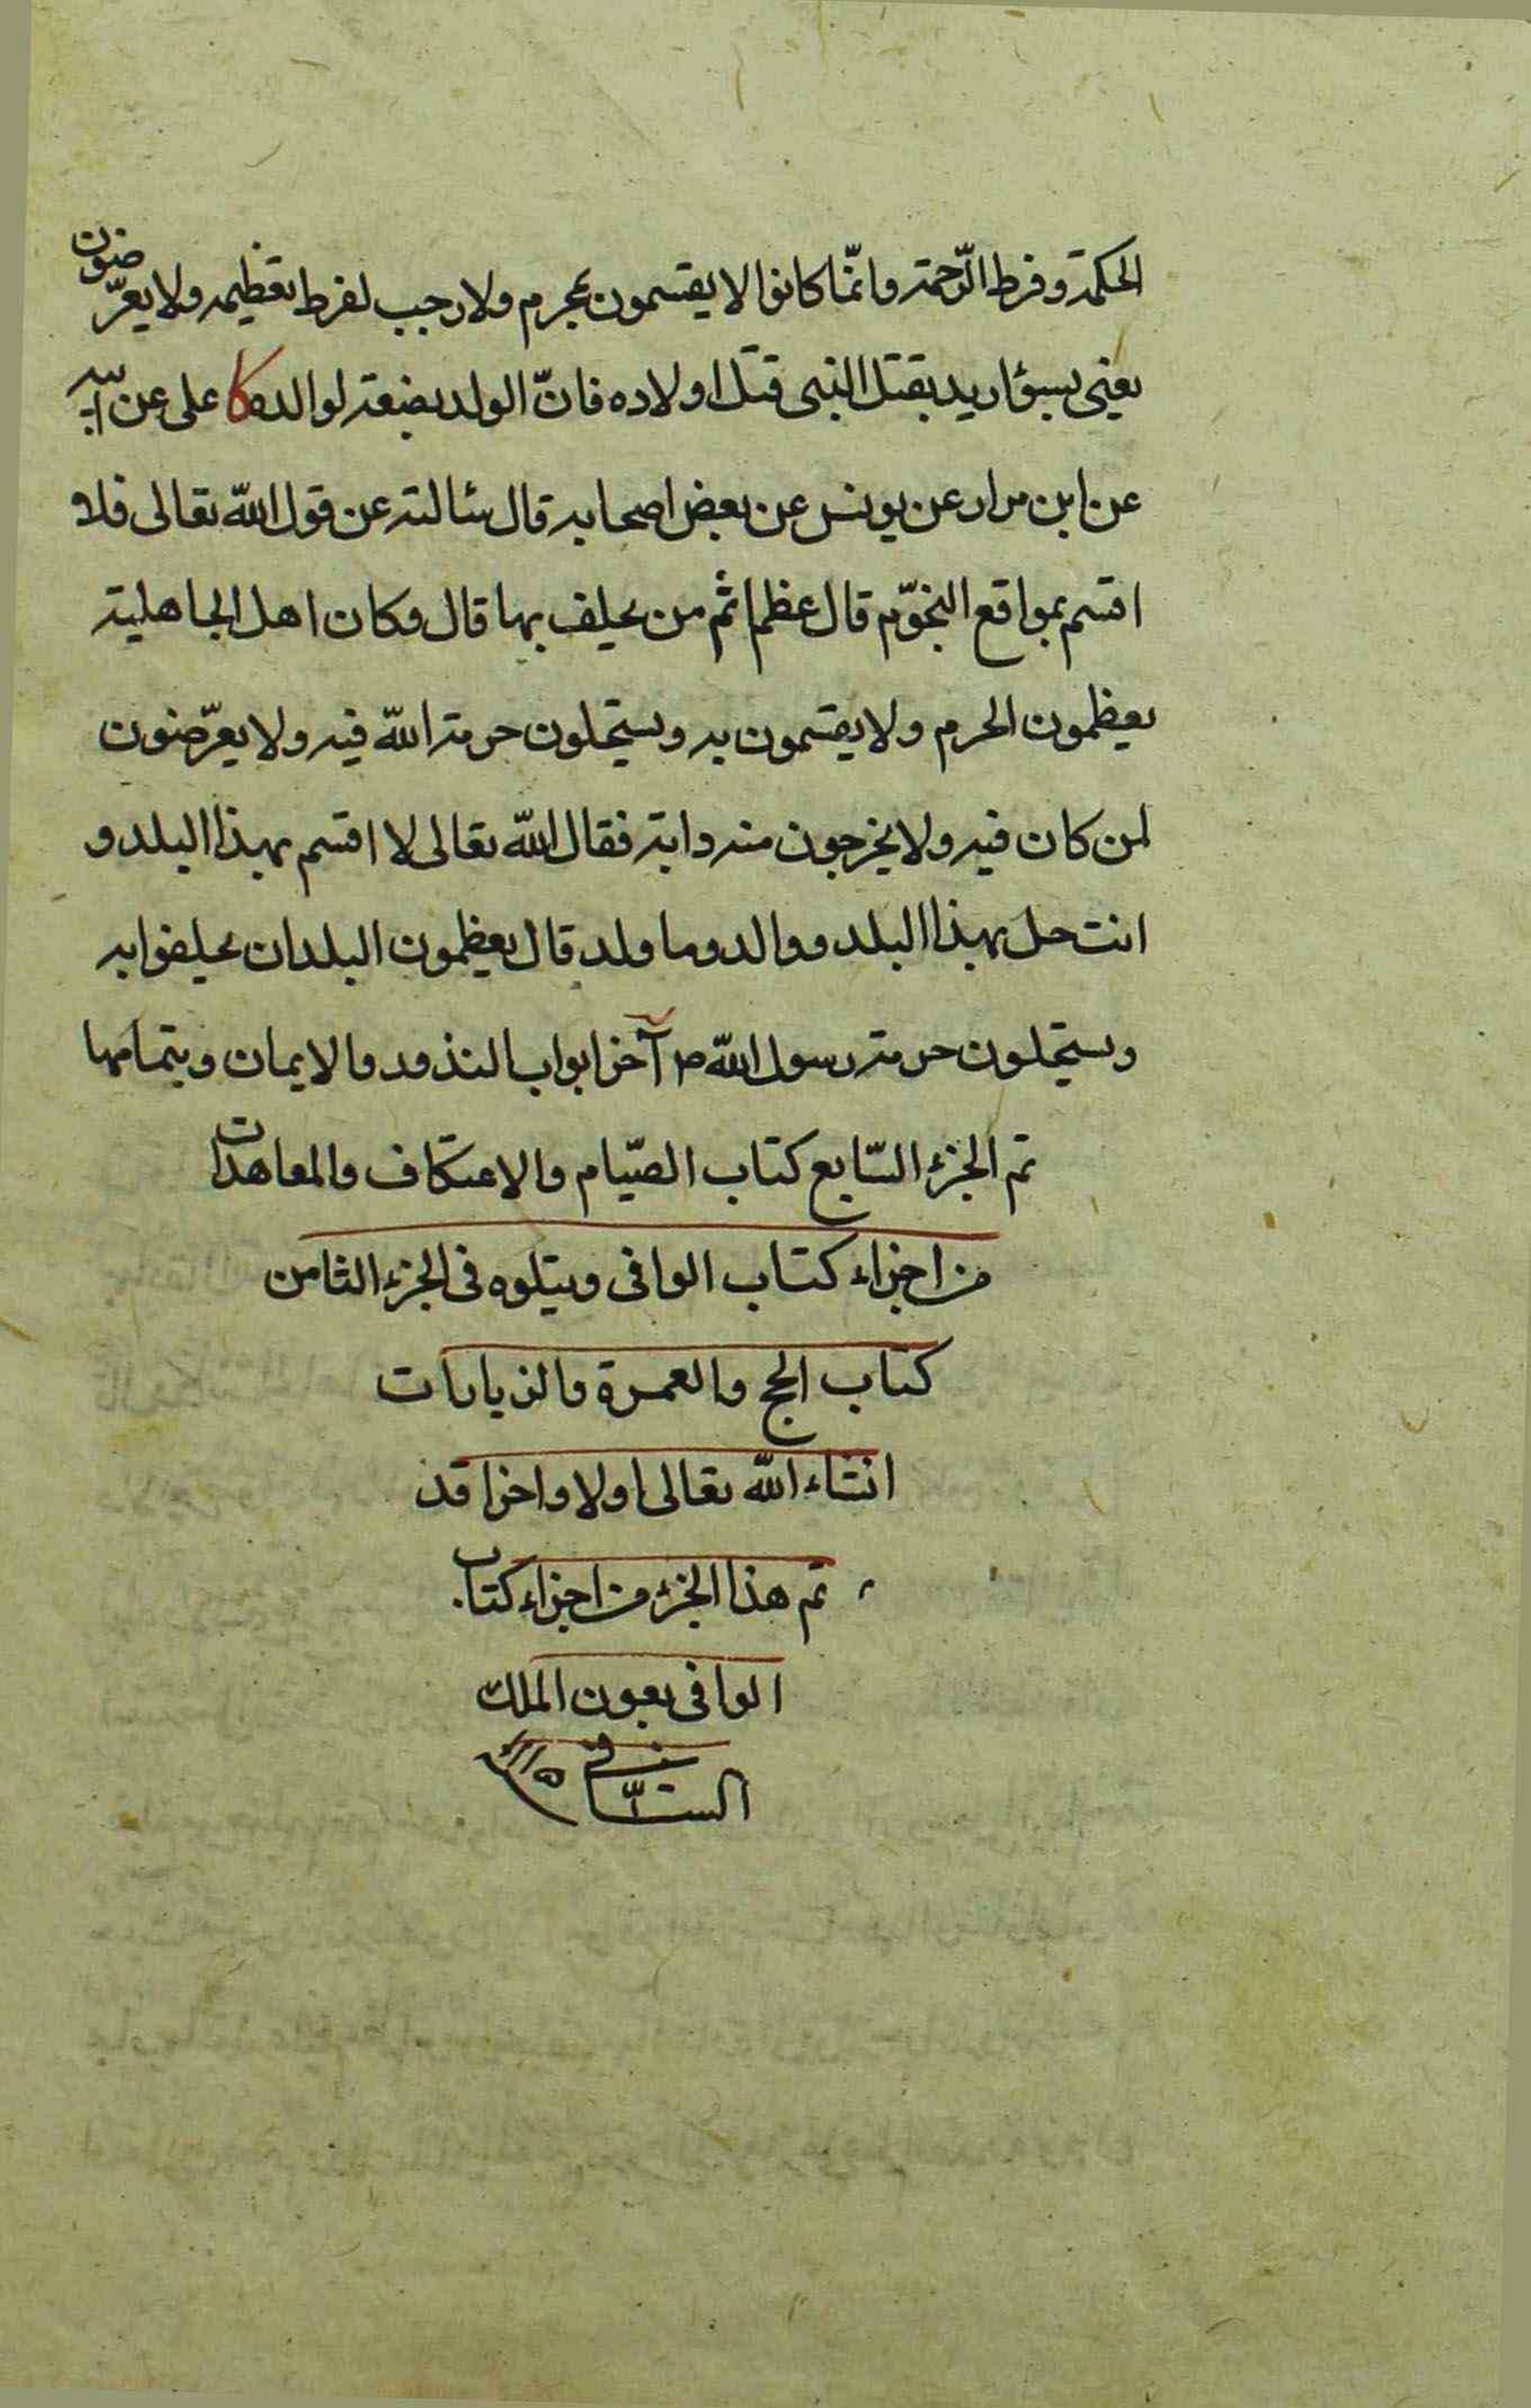 الحكمة وفرط الرّحمة وانّما كانوا لا يقسمون بمحرم ولا رجب لفرط تعظيمه ولا يعرّضون
يعنى بسوٓ اريد بقتل النبى قتل اولاده فانّ الولد بضعة لوالده كا على عن ابيه
عن ابن مرار عن يونس عن بعض اصحابه قال سئالته عن قول الله تعالى فلا
اقسم بمواقع النجوّم قال عظم اثم من يحلف بها قال وكان اهل الجاهلية
يعظمون الحرم ولا يقسمون به ويستحلون حرمة الله فيه ولا يعرّضون
لمن كان فيه ولا يخرجون منه دابة فقال الله تعالى لا اقسم بهذا البلد و
انت حل بهذا البلد ووالد وما ولد قال يعظمون البلدان يحلفوا به
ويستحلون حرمة رسول الله ص آخر ابواب النذور والايمان وبتمامها
تم الجزء السّابع كتاب الصّيام والاعتكاف والمعاهدات
من اجزاء كتاب الوافى ويتلوه فى الجزء الثامن
كتاب الحج والعمرة والزيارات
انشاء الله تعالى اولا واخرا قد
تم هذا الجزء من اجزاء كتاب
الوافى بعون الملك
الشّافى سنة